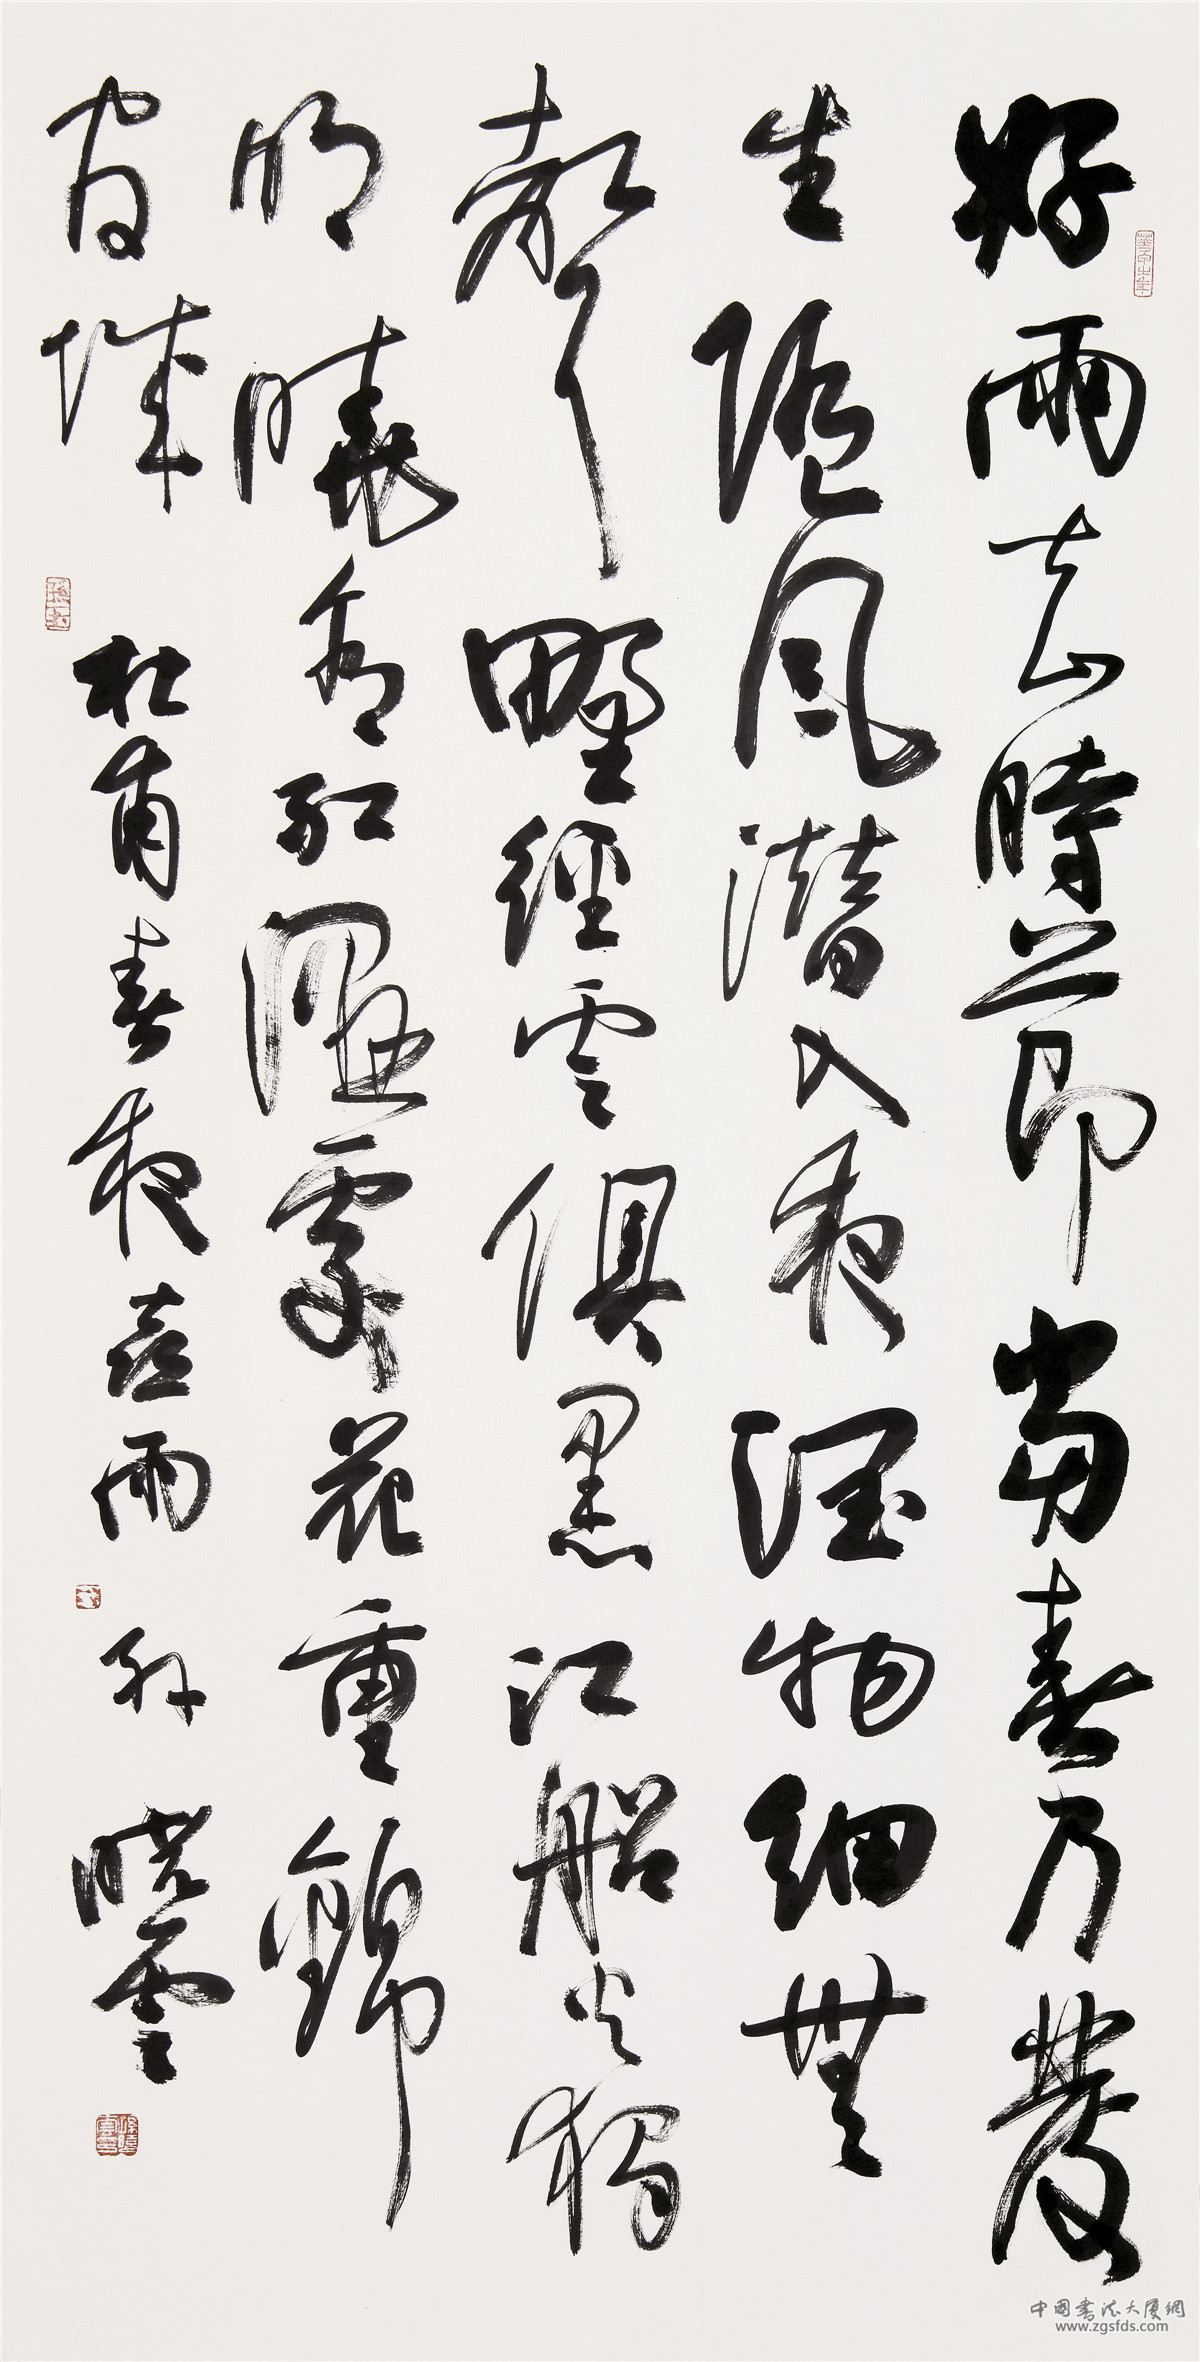 好雨知時節當春乃發
生隨風潛入夜潤物細無
聲野徑雲俱黑江船火獨
明曉看紅濕處花重錦
官城 杜甫春夜喜雨 孫曉雲
中國書法大廈網
www.zgsfds.com